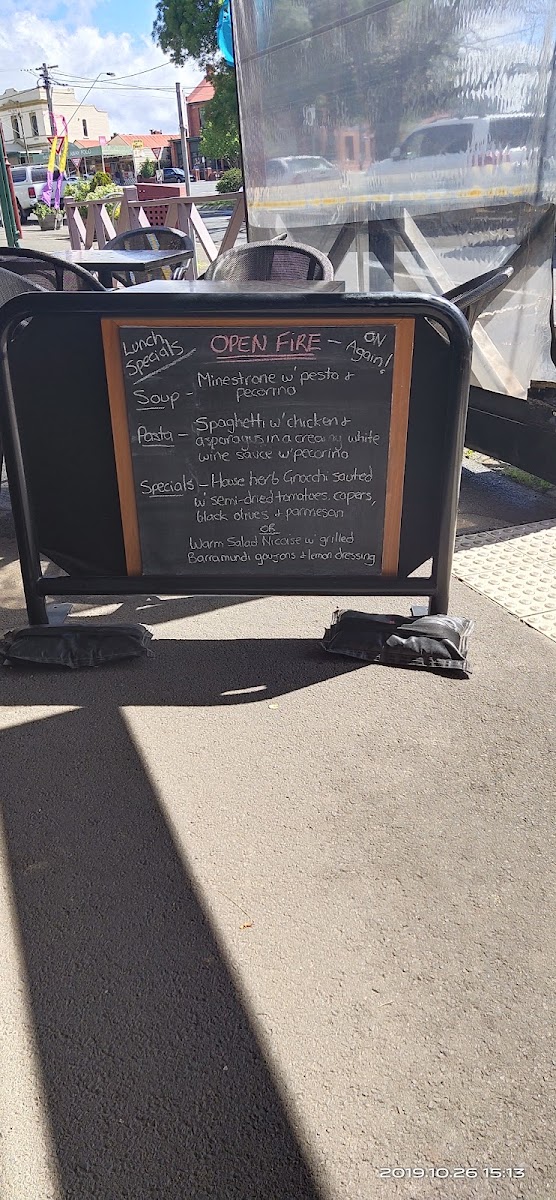 Lunch
Specials
OPEN FIRE - ON
Again!
Soup - Minestrone w' pesto &
pecorino
Pasta - Spaghetti w' chicken &
asparagus in a creamy white
wine sauce w' pecorino
Specials - House herb Gnocchi sauted
w' semi-dried tomatoes, capers,
black olives & parmesan
OR
Warm Salad Nicoise w' grilled
Barramundi goujons & lemon dressing
2019.10.26 15:13